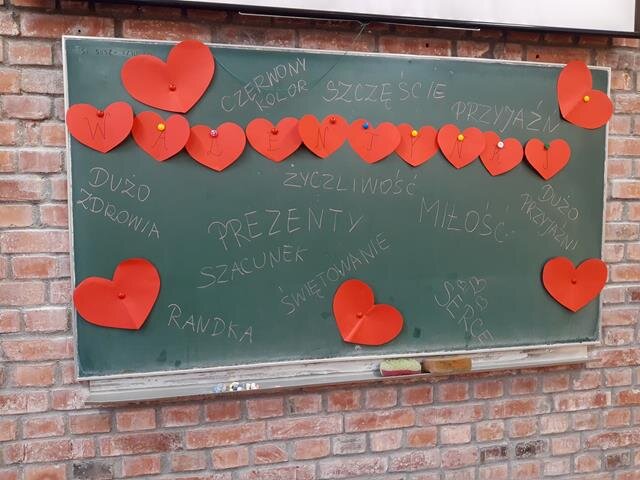 CZERWONY
KOLOR
SZCZĘŚCIE
PRZYJAŹŃ
WALENTYNKI
DUŻO
ZDROWIA
ŻYCZLIWOŚĆ
PREZENTY
MIŁOŚĆ
DUŻO
PRZYJAŹNI
SZACUNEK
ŚWIĘTOWANIE
RANDKA
SERCE